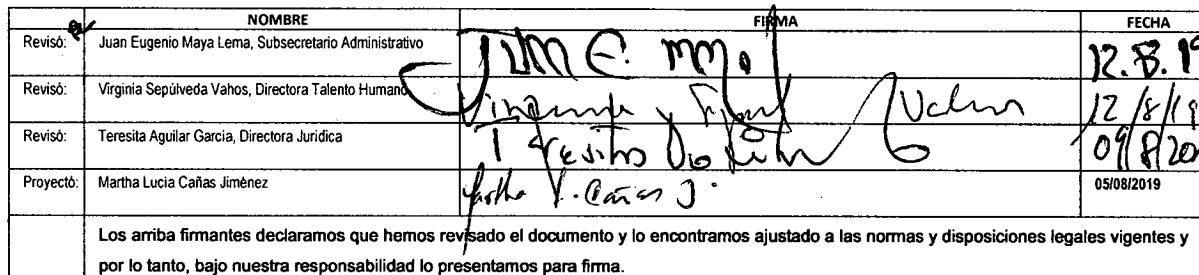 NOMBRE FIRMA FECHA
Revisó: Juan Eugenio Maya Lema, Subsecretario Administrativo 12.8.19
Revisó: Virginia Sepúlveda Vahos, Directora Talento Humano 12/8/19
Revisó: Teresita Aguilar Garcia, Directora Jurídica 09/8/20
Proyectó: Martha Lucia Cañas Jiménez Martha L. Cañas J. 05/08/2019
Los arriba firmantes declaramos que hemos revisado el documento y lo encontramos ajustado a las normas y disposiciones legales vigentes y
por lo tanto, bajo nuestra responsabilidad lo presentamos para firma.